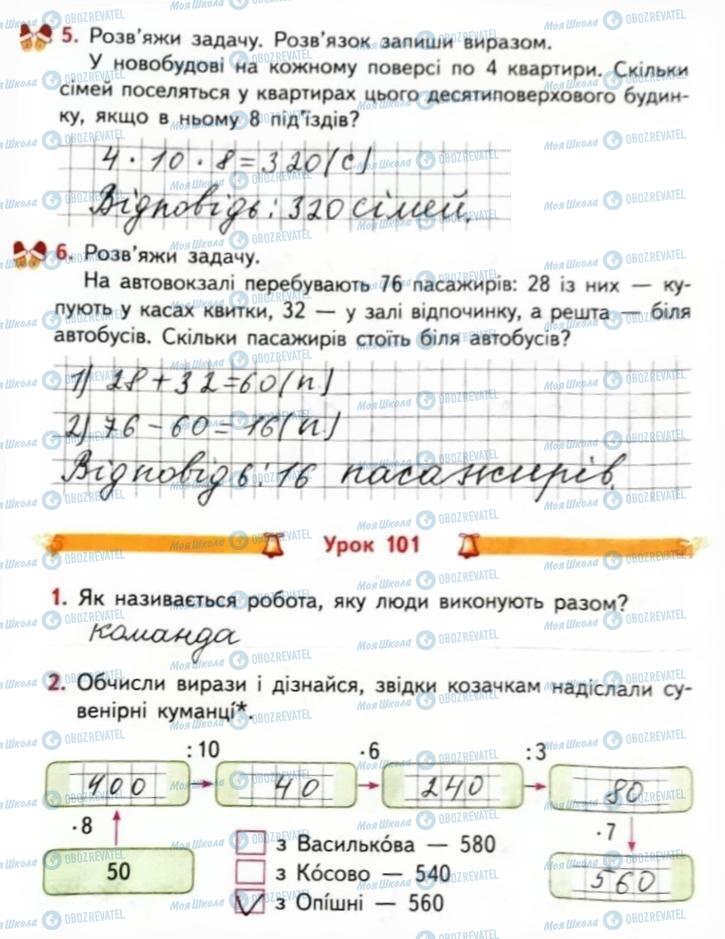 5. Розв'яжи задачу. Розв'язок запиши виразом.
У новобудові на кожному поверсі по 4 квартири. Скільки
сімей поселяться у квартирах цього десятиповерхового будин-
ку, якщо в ньому 8 під'їздів?
4 · 10 · 8 = 320 (с)
Відповідь: 320 сімей.
6. Розв'яжи задачу.
На автовокзалі перебувають 76 пасажирів: 28 із них — ку-
пують у касах квитки, 32 — у залі відпочинку, а решта — біля
автобусів. Скільки пасажирів стоїть біля автобусів?
1) 28 + 32 = 60 (п.)
2) 76 - 60 = 16 (п.)
Відповідь: 16 пасажирів.
Урок 101
1. Як називається робота, яку люди виконують разом?
команда
2. Обчисли вирази і дізнайся, звідки козачкам надіслали су-
венірні куманці*.
: 10 · 6 : 3
400 40 240 80
· 8 · 7
50
з Василько́ва — 580
з Ко́сово — 540
з Опі́шні — 560
560
МояШкола OBOZREVATEL